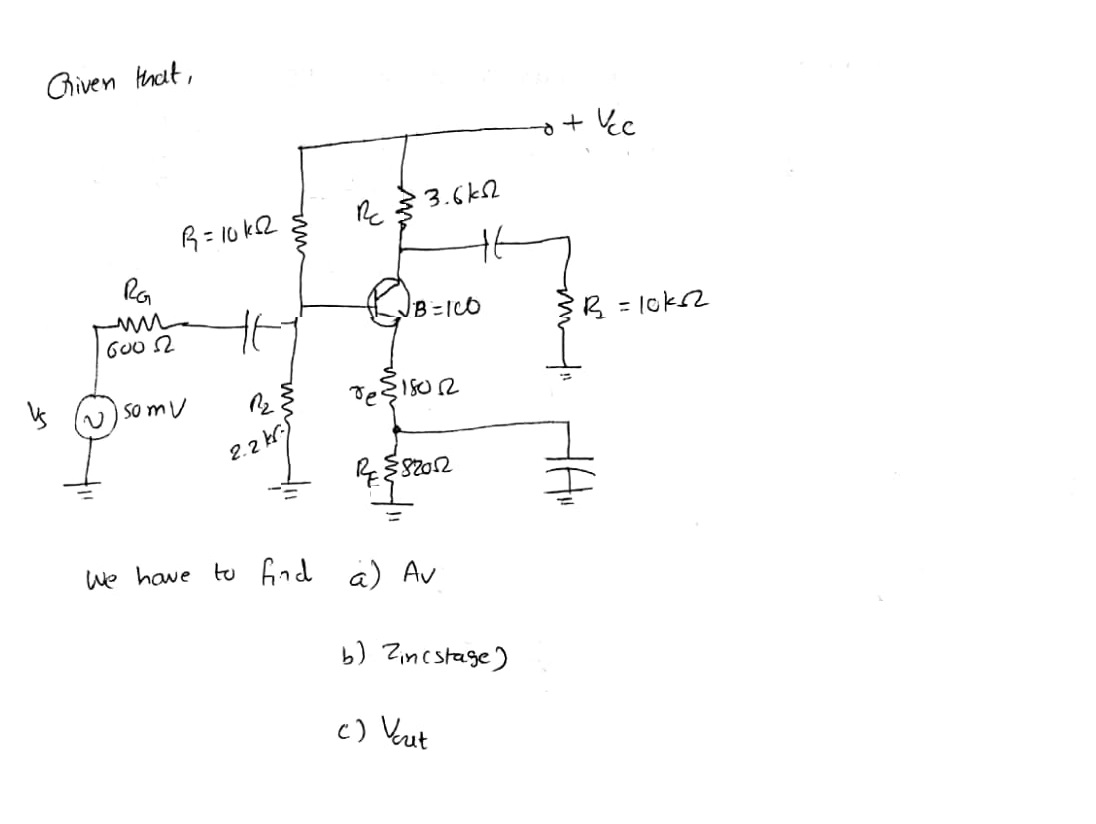 Given that,
+ Vcc
Rc 3.6kΩ
R1 = 10kΩ
RG
600 Ω
B=100
RL = 10kΩ
Vs 50 mV
R2
2.2 kΩ
re 180 Ω
RE 820Ω
We have to find a) Av
b) Zin(stage)
c) Vout